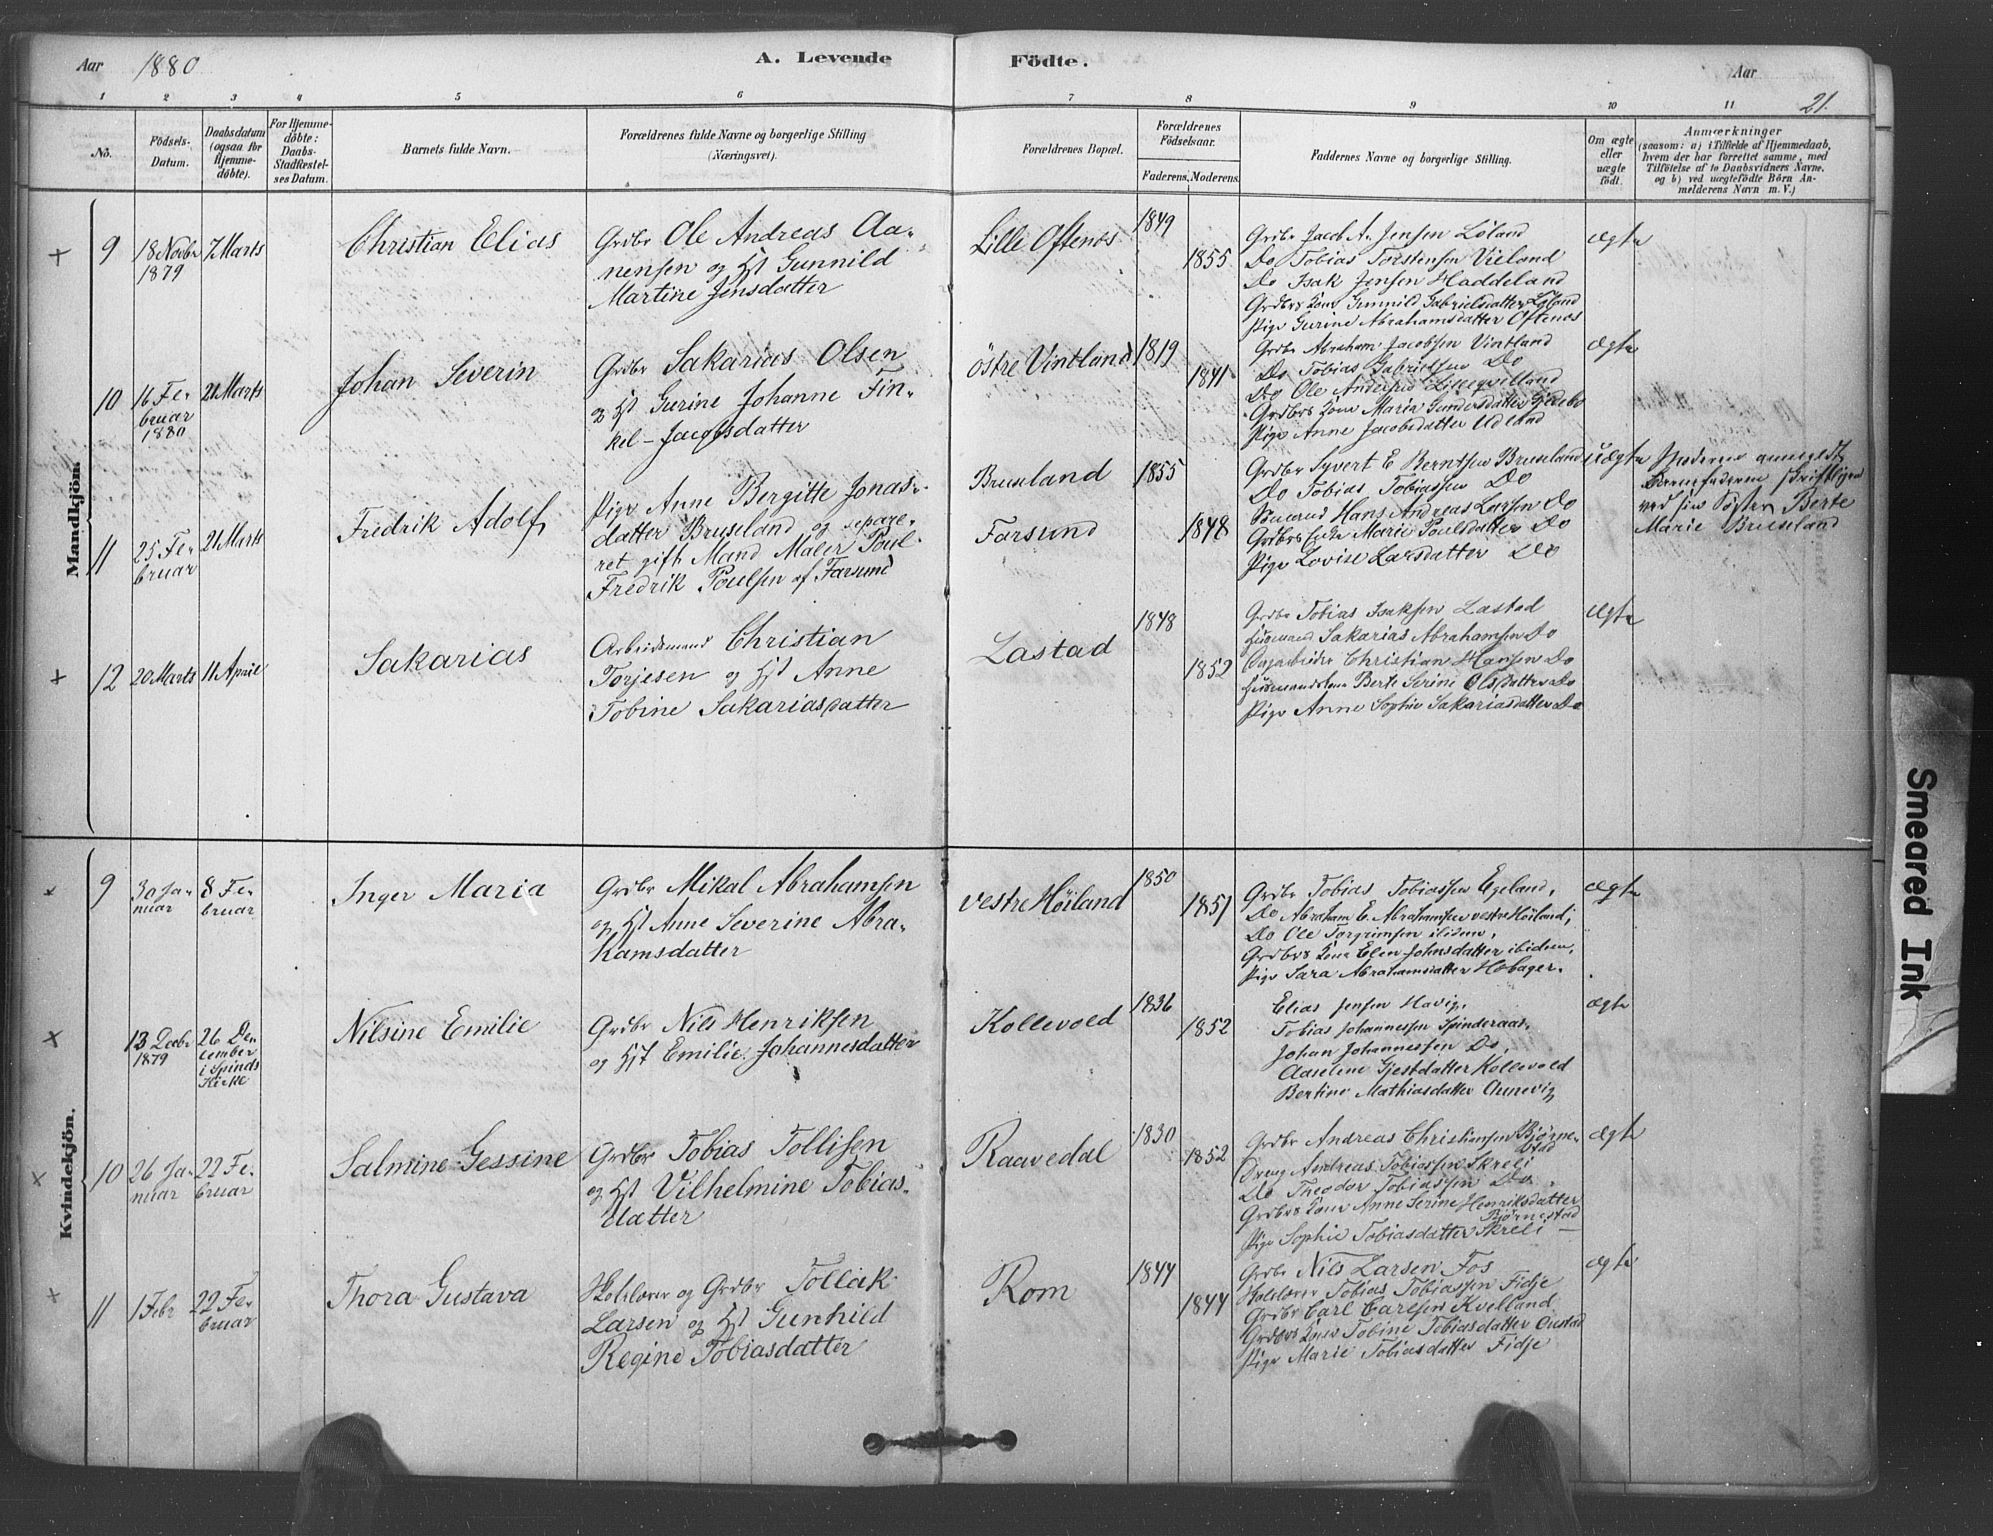 Aar 1880 A. Levende Födte. Aar
1 2 3 4 5 6 7 8 9 10 11 21.
No.
Födsels-
Datum.
Daabsdatum
(ogsaa for
Hjemme-
döbte).
For Hjemme-
döbte:
Daabs-
Stadfæstel-
ses Datum.
Barnets fulde Navn.
Forældrenes fulde Navne og borgerlige Stilling
(Næringsvei).
Forældrenes Bopæl.
Forældrenes
Födselsaar.
Faderens. Moderens.
Faddernes Navne og borgerlige Stilling.
Om ægte
eller
uægte
födt.
Anmærkninger
(saasom: a) i Tilfælde af Hjemmedaab,
hvem der har forrettet samme, med
Tilföielse af to Daabsvidners Navne,
og b) ved uægtefödte Börn An-
melderens Navn m. V.)
Mandkjön.
9
18 Novbr
1879
7 Marts
Christian Elias
Grdbr Ole Andreas Aa-
nensen og Hst Gunnild
Martine Jensdatter
Lille Oftenes
1849
1855
Grdbr Jacob A. Jensen Löland
Do Tobias Torstensen Vieland
Do Isak Jensen Haddeland
Grdbrs Kone Gunnild Gabrielsdatter Löland
Pige Gurine Abrahamsdatter Oftenes
ægte
10
16 Fe-
bruar
1880
21 Marts
Johan Severin
Grdbr Sakarias Olsen
og Hst Gurine Johanne Fin-
kel-Jacobsdatter
östre Vintland
1819
1841
Grdbr Abraham Jacobsen Vintland
Do Tobias Gabrielsen Do
Do Ole Andersen
Grdbrs Kone Maria Gundersdatter
Pige Anne Jacobsdatter Udland
ægte
11
25 Fe-
bruar
21 Marts
Fredrik Adolf
Pige Anne Bergitte Jonas-
datter Bruseland og separe-
ret gift Mand Maler Poul
Fredrik Poulsen af Farsund
Bruseland
Farsund
1855
1848
Grdbr Syvert E Berntsen Bruseland
Do Tobias Tobiassen Do
Hans Andreas Larsen Do
Grdbrs Enke Marie Poulsdatter Do
Pige Lovise Larsdatter Do
uægte
Moderen anmeldt
Barnefaderen skriftligen
ved sin Söster Berte
Marie Bruseland
12
20 Marts
11 April
Sakarias
Arbeidsmand Christian
Torjesen og Hst Anne
Tobine Sakariasdatter
Lastad
1848
1852
Grdbr Tobias Isaksen Lastad
Husmand Sakarias Abrahamsen Do
Christian Hansen Do
Husmandskone Berte Serine Olsdatter Do
Pige Anne Sophie Sakariasdatter Do
ægte
Kvindekjön.
9
30 Ja-
nuar
8 Fe-
bruar
Inger Maria
Grdbr Mikal Abrahamsen
og Hst Anne Severine Abra-
hamsdatter
vestre Höiland
1850
1851
Grdbr Tobias Tobiassen Egeland,
Do Abraham E. Abrahamsen vestre Höiland;
Do Ole Torgrimsen ibidem,
Grdbrs Kone Elen Johnsdatter ibidem,
Pige Sara Abrahamsdatter Hobager.
ægte
13 Decbr
1879
26 De-
cember
i Spinds
Kirke
Nilsine Emilie
Grdbr Nils Henriksen
og Hst Emilie Johannesdatter
Kollevold
1836
1852
Elias Jensen Havig,
Tobias Johannessen Spinderaas,
Johan Johannessen Do,
Aaseline Gjestdatter Kollevold
Bertine Mathiasdatter
ægte
10
26 Ja-
nuar
22 Fe-
bruar
Salmine Gessine
Grdbr Tobias Tollisen
og Hst Vilhelmine Tobias-
datter
Raavedal
1830
1852
Grdbr Andreas Christiansen Björne-
stad
Dreng Andreas Tobiassen Skreli
Do Theodor Tobiassen Do.
Grdbrs Kone Anne Serine Henriksdatter
Björnestad
Pige Sophie Tobiasdatter Skreli
ægte
11
1 Febr
22 Fe-
bruar
Thora Gustava
Skolelærer og Grdbr Tollak
Larsen og Hst Gunhild
Regine Tobiasdatter
Rom
1844
1844
Grdbr Nils Larsen Fos
Skolelærer Tobias Tobiassen Fidje
Grdbr Carl Carlsen Kvelland
Grdbrs Kone Tobine Tobiasdatter
Pige Marie Tobiasdatter Fidje
ægte
Smeared Ink